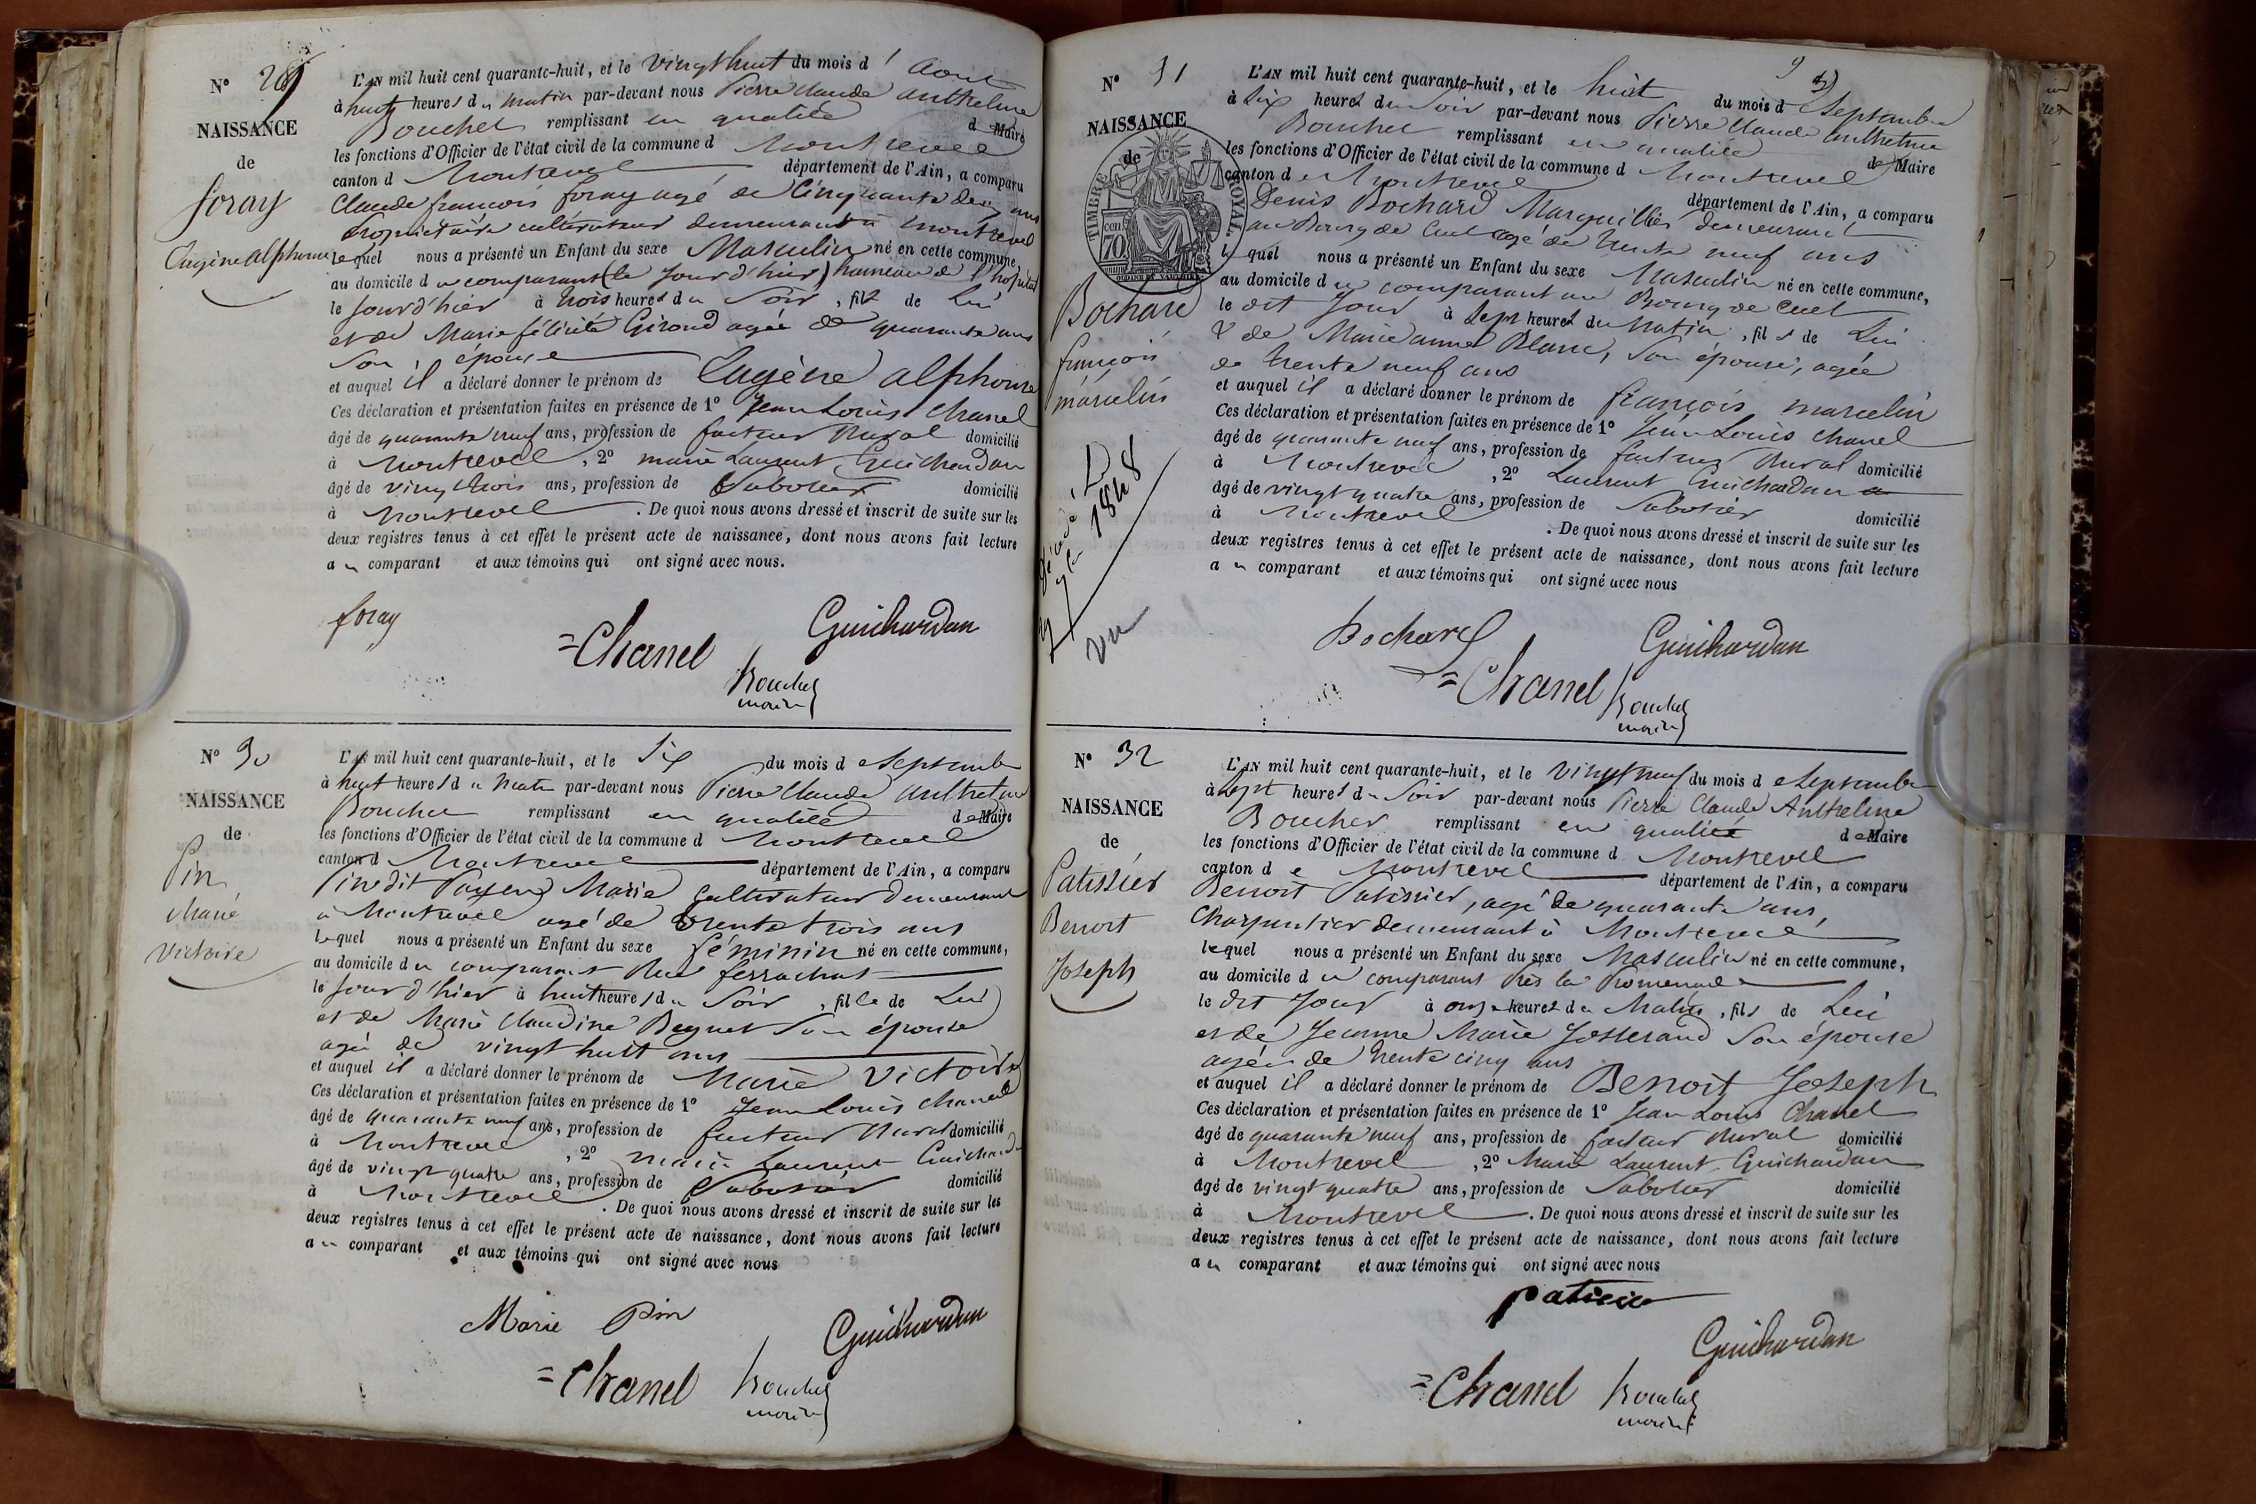 N° 29
NAISSANCE
de
foray
Eugène Alphonse
L'AN mil huit cent quarante-huit, et le vingt huit du mois d' Aout
à huit heures du matin par-devant nous Pierre Claude Anthelme
Bouchet remplissant en qualité de Maire
les fonctions d'Officier de l'état civil de la commune d Montrevel
canton d Montrevel département de l'Ain, a comparu
Claude francois foray agé de Cinquante deux ans
Propriétaire cultivateur demeurant à montrevel
lequel nous a présenté un Enfant du sexe Masculin né en cette commune,
au domicile du comparant (le jour d'hier) hameau de l'hopital
le jour d'hier à trois heures du Soir, fils de Lui
et de Marie félicité Giroud agée de quarante ans
Son épouse
et auquel il a déclaré donner le prénom de Eugène alphonse
Ces déclaration et présentation faites en présence de 1° Jean Louis Chanel
âgé de quarante neuf ans, profession de facteur Rural domicilié
à Montrevel, 2° marie Laurent Guichardan
âgé de vingt trois ans, profession de Sabotier domicilié
à Montrevel. De quoi nous avons dressé et inscrit de suite sur les
deux registres tenus à cet effet le présent acte de naissance, dont nous avons fait lecture
au comparant et aux témoins qui ont signé avec nous.
foray
Chanel
Guichardan
Bouchet
maire
N° 30
NAISSANCE
de
Pin
Marie
Victoire
L'AN mil huit cent quarante-huit, et le Six du mois de Septembre
à huit heures du Matin par-devant nous Pierre Claude Anthelme
Bouchet remplissant en qualité de Maire
les fonctions d'Officier de l'état civil de la commune d Montrevel
canton d Montrevel département de l'Ain, a comparu
Pin dit Payen Marie Cultivateur demeurant
à Montrevel agé de trente trois ans
Lequel nous a présenté un Enfant du sexe féminin né en cette commune,
au domicile du comparant Rue ferrachat
le jour d'hier à huit heures du Soir, fille de Lui
et de Marie Claudine Beguet Son épouse
agée de vingt huit ans
et auquel il a déclaré donner le prénom de Marie Victoire
Ces déclaration et présentation faites en présence de 1° Jean Louis Chanel
âgé de quarante neuf ans, profession de facteur Rural domicilié
à Montrevel, 2° marie Laurent Guichardan
âgé de vingt quatre ans, profession de Sabotier domicilié
à Montrevel. De quoi nous avons dressé et inscrit de suite sur les
deux registres tenus à cet effet le présent acte de naissance, dont nous avons fait lecture
au comparant et aux témoins qui ont signé avec nous
Marie Pin
Guichardan
Chanel
Bouchet
maire
9
N° 31
NAISSANCE
de
TIMBRE ROYAL
70
Bochard
françois
marcelin
1848
vu
L'AN mil huit cent quarante-huit, et le huit du mois de Septembre
à Six heures du Soir par-devant nous Pierre Claude Anthelme
Bouchet remplissant en qualité de Maire
les fonctions d'Officier de l'état civil de la commune d Montrevel
canton de Montrevel département de l'Ain, a comparu
Denis Bochard Marguillier demeurant
au Bourg de Cuet agé de trente neuf ans
lequel nous a présenté un Enfant du sexe Masculin né en cette commune,
au domicile du comparant au Bourg de Cuet
le dit jour à Sept heures du Matin, fils de Lui
& de Marie anne Blanc, Son épouse, agée
de trente neuf ans
et auquel il a déclaré donner le prénom de françois marcelin
Ces déclaration et présentation faites en présence de 1° Jean Louis Chanel
âgé de quarante neuf ans, profession de facteur Rural domicilié
à Montrevel, 2° Laurent Guichardan
âgé de vingt quatre ans, profession de Sabotier domicilié
à Montrevel. De quoi nous avons dressé et inscrit de suite sur les
deux registres tenus à cet effet le présent acte de naissance, dont nous avons fait lecture
au comparant et aux témoins qui ont signé avec nous
Bochard
Guichardan
Chanel
Bouchet
maire
N° 32
NAISSANCE
de
Patissier
Benoit
Joseph
L'AN mil huit cent quarante-huit, et le Vingt neuf du mois de Septembre
à Sept heures du Soir par-devant nous Pierre Claude Anthelme
Bouchet remplissant en qualité de Maire
les fonctions d'Officier de l'état civil de la commune d Montrevel
canton de Montrevel département de l'Ain, a comparu
Benoit Patissier, agé de quarante ans,
Charpentier demeurant à Montrevel
lequel nous a présenté un Enfant du sexe Masculin né en cette commune,
au domicile du comparant Près la Promenade
le dit Jour à onze heures du Matin, fils de Lui
et de Jeanne Marie Josserand Son épouse
agée de trente cinq ans
et auquel il a déclaré donner le prénom de Benoit Joseph
Ces déclaration et présentation faites en présence de 1° Jean Louis Chanel
âgé de quarante neuf ans, profession de facteur Rural domicilié
à Montrevel, 2° Marie Laurent Guichardan
âgé de vingt quatre ans, profession de Sabotier domicilié
à Montrevel. De quoi nous avons dressé et inscrit de suite sur les
deux registres tenus à cet effet le présent acte de naissance, dont nous avons fait lecture
au comparant et aux témoins qui ont signé avec nous
Guichardan
Chanel
Bouchet
maire